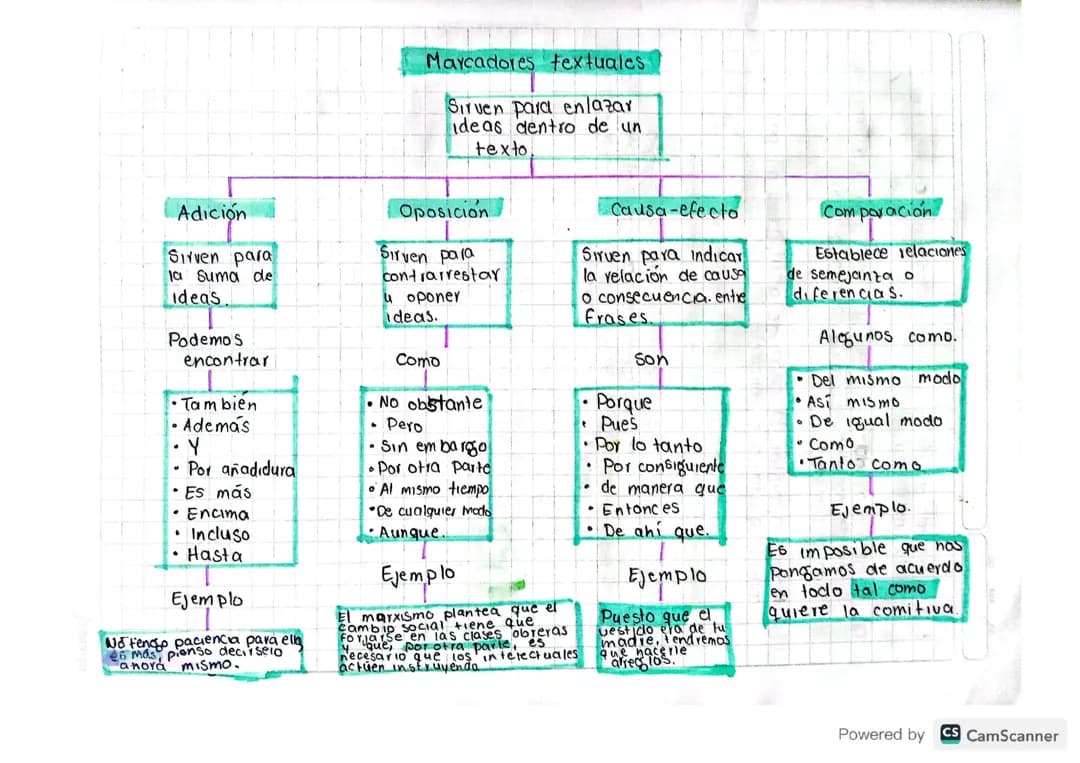 Marcadores textuales
Sirven para enlazar
ideas dentro de un
texto.
Adición
Sirven para
la suma de
ideas.
Podemos
encontrar
• También
• Además
• Y
• Por añadidura
• Es más
• Encima
• Incluso
• Hasta
Ejemplo
No tengo paciencia para ella
es más, pienso decírselo
ahora mismo.
Oposición
Sirven para
contrarrestar
u oponer
ideas.
Como
• No obstante
• Pero
• Sin embargo
• Por otra parte
• Al mismo tiempo
• De cualquier modo
• Aunque.
Ejemplo
El marxismo plantea que el
cambio social tiene que
forjarse en las clases obreras
y que, por otra parte, es
necesario que los intelectuales
actúen instruyendo
Causa-efecto
Sirven para indicar
la relación de causa
o consecuencia. entre
frases.
son
• Porque
• Pues
• Por lo tanto
• Por consiguiente
• de manera que
• Entonces
• De ahí que.
Ejemplo
Puesto que el
vestido era de tu
madre, tendremos
que hacerle
arreglos.
Comparación
Establece relaciones
de semejanza o
diferencias.
Algunos como.
• Del mismo modo
• Así mismo
• De igual modo
• Como
• Tanto como
Ejemplo.
Es imposible que nos
pongamos de acuerdo
en todo tal como
quiere la comitiva.
Powered by CS CamScanner